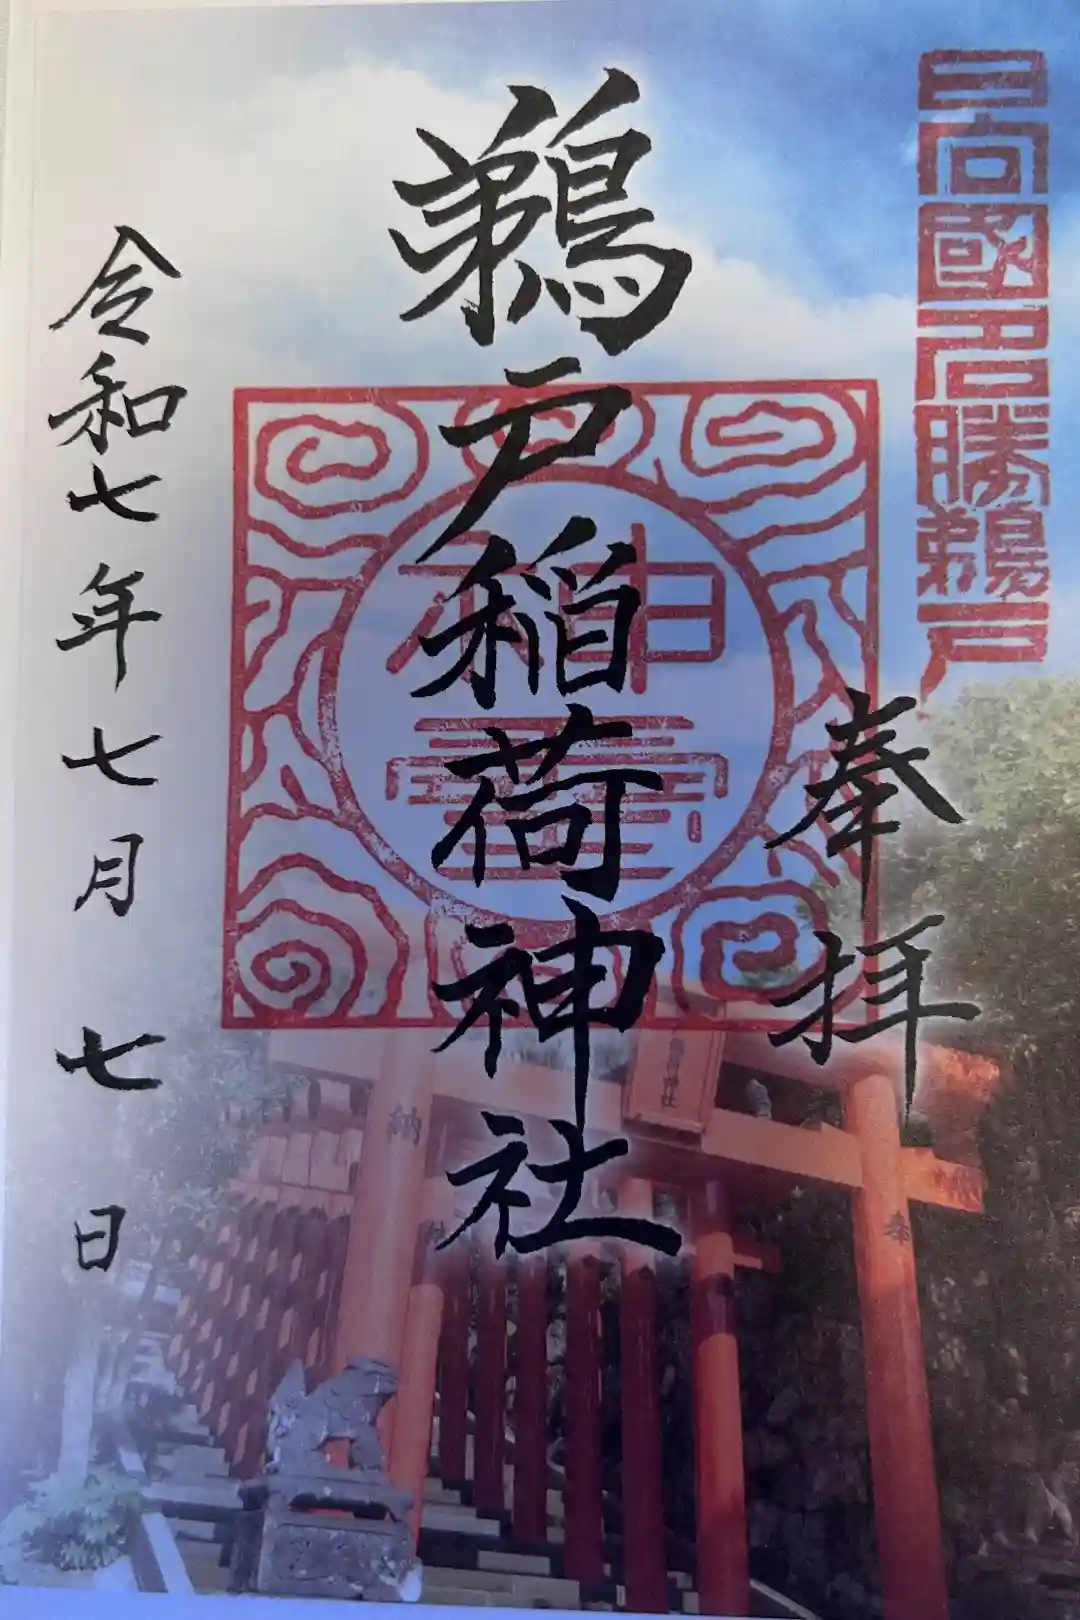 日向國名勝鵜戸
奉拝
鵜戸稲荷神社
令和七年七月七日
納
奉